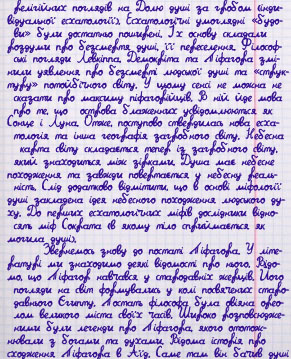 релігійних поглядів на Долю душі за гробом (інди-
відуальної есхатології). Есхатологічні умоглядні «будо-
ви» були достатньо поширені. Їх основу складали
роздуми про безсмертя душі, її переселення. Філософ-
ські погляди Левкіппа, Демокріта та Піфагора змі-
нили уявлення про безсмертя людської душі та «струк-
туру» потойбічного світу. У цьому сенсі не можна не
сказати про максиму піфагорійців. В ній йде мова
про те, що острова блаженних усвідомлюються як
Сонце і Луна. Отже, поступово створилась нова есха-
тологія та інша географія загробного світу. Небесна
карта світу складається тепер із загробного світу,
який знаходиться між зірками. Душа має небесне
походження та завжди повертається у небесну реаль-
ність. Слід додатково відмітити, що в основі міфології
душі закладена ідея небесного походження людського ду-
ху. До перших есхатологічних міфів дослідники відно-
сять міф Сократа (в якому тіло сприймається як
могила душі).
Звернемось знову до постаті Піфагора. У літе-
ратурі ми знаходимо деякі відомості про нього. Відо-
мо, що Піфагор навчався у стародавніх жерців. Його
погляди на світ формувались у колі посвячених старо-
давнього Єгипту. Постать філософа була овіяна орео-
лом великого міста своїх часів. Широко розповсюдже-
ними були легенди про Піфагора, якого ототож-
нювали з богами та духами. Відома історія про
сходження Піфагора в Аїд. Саме там він бачив душі